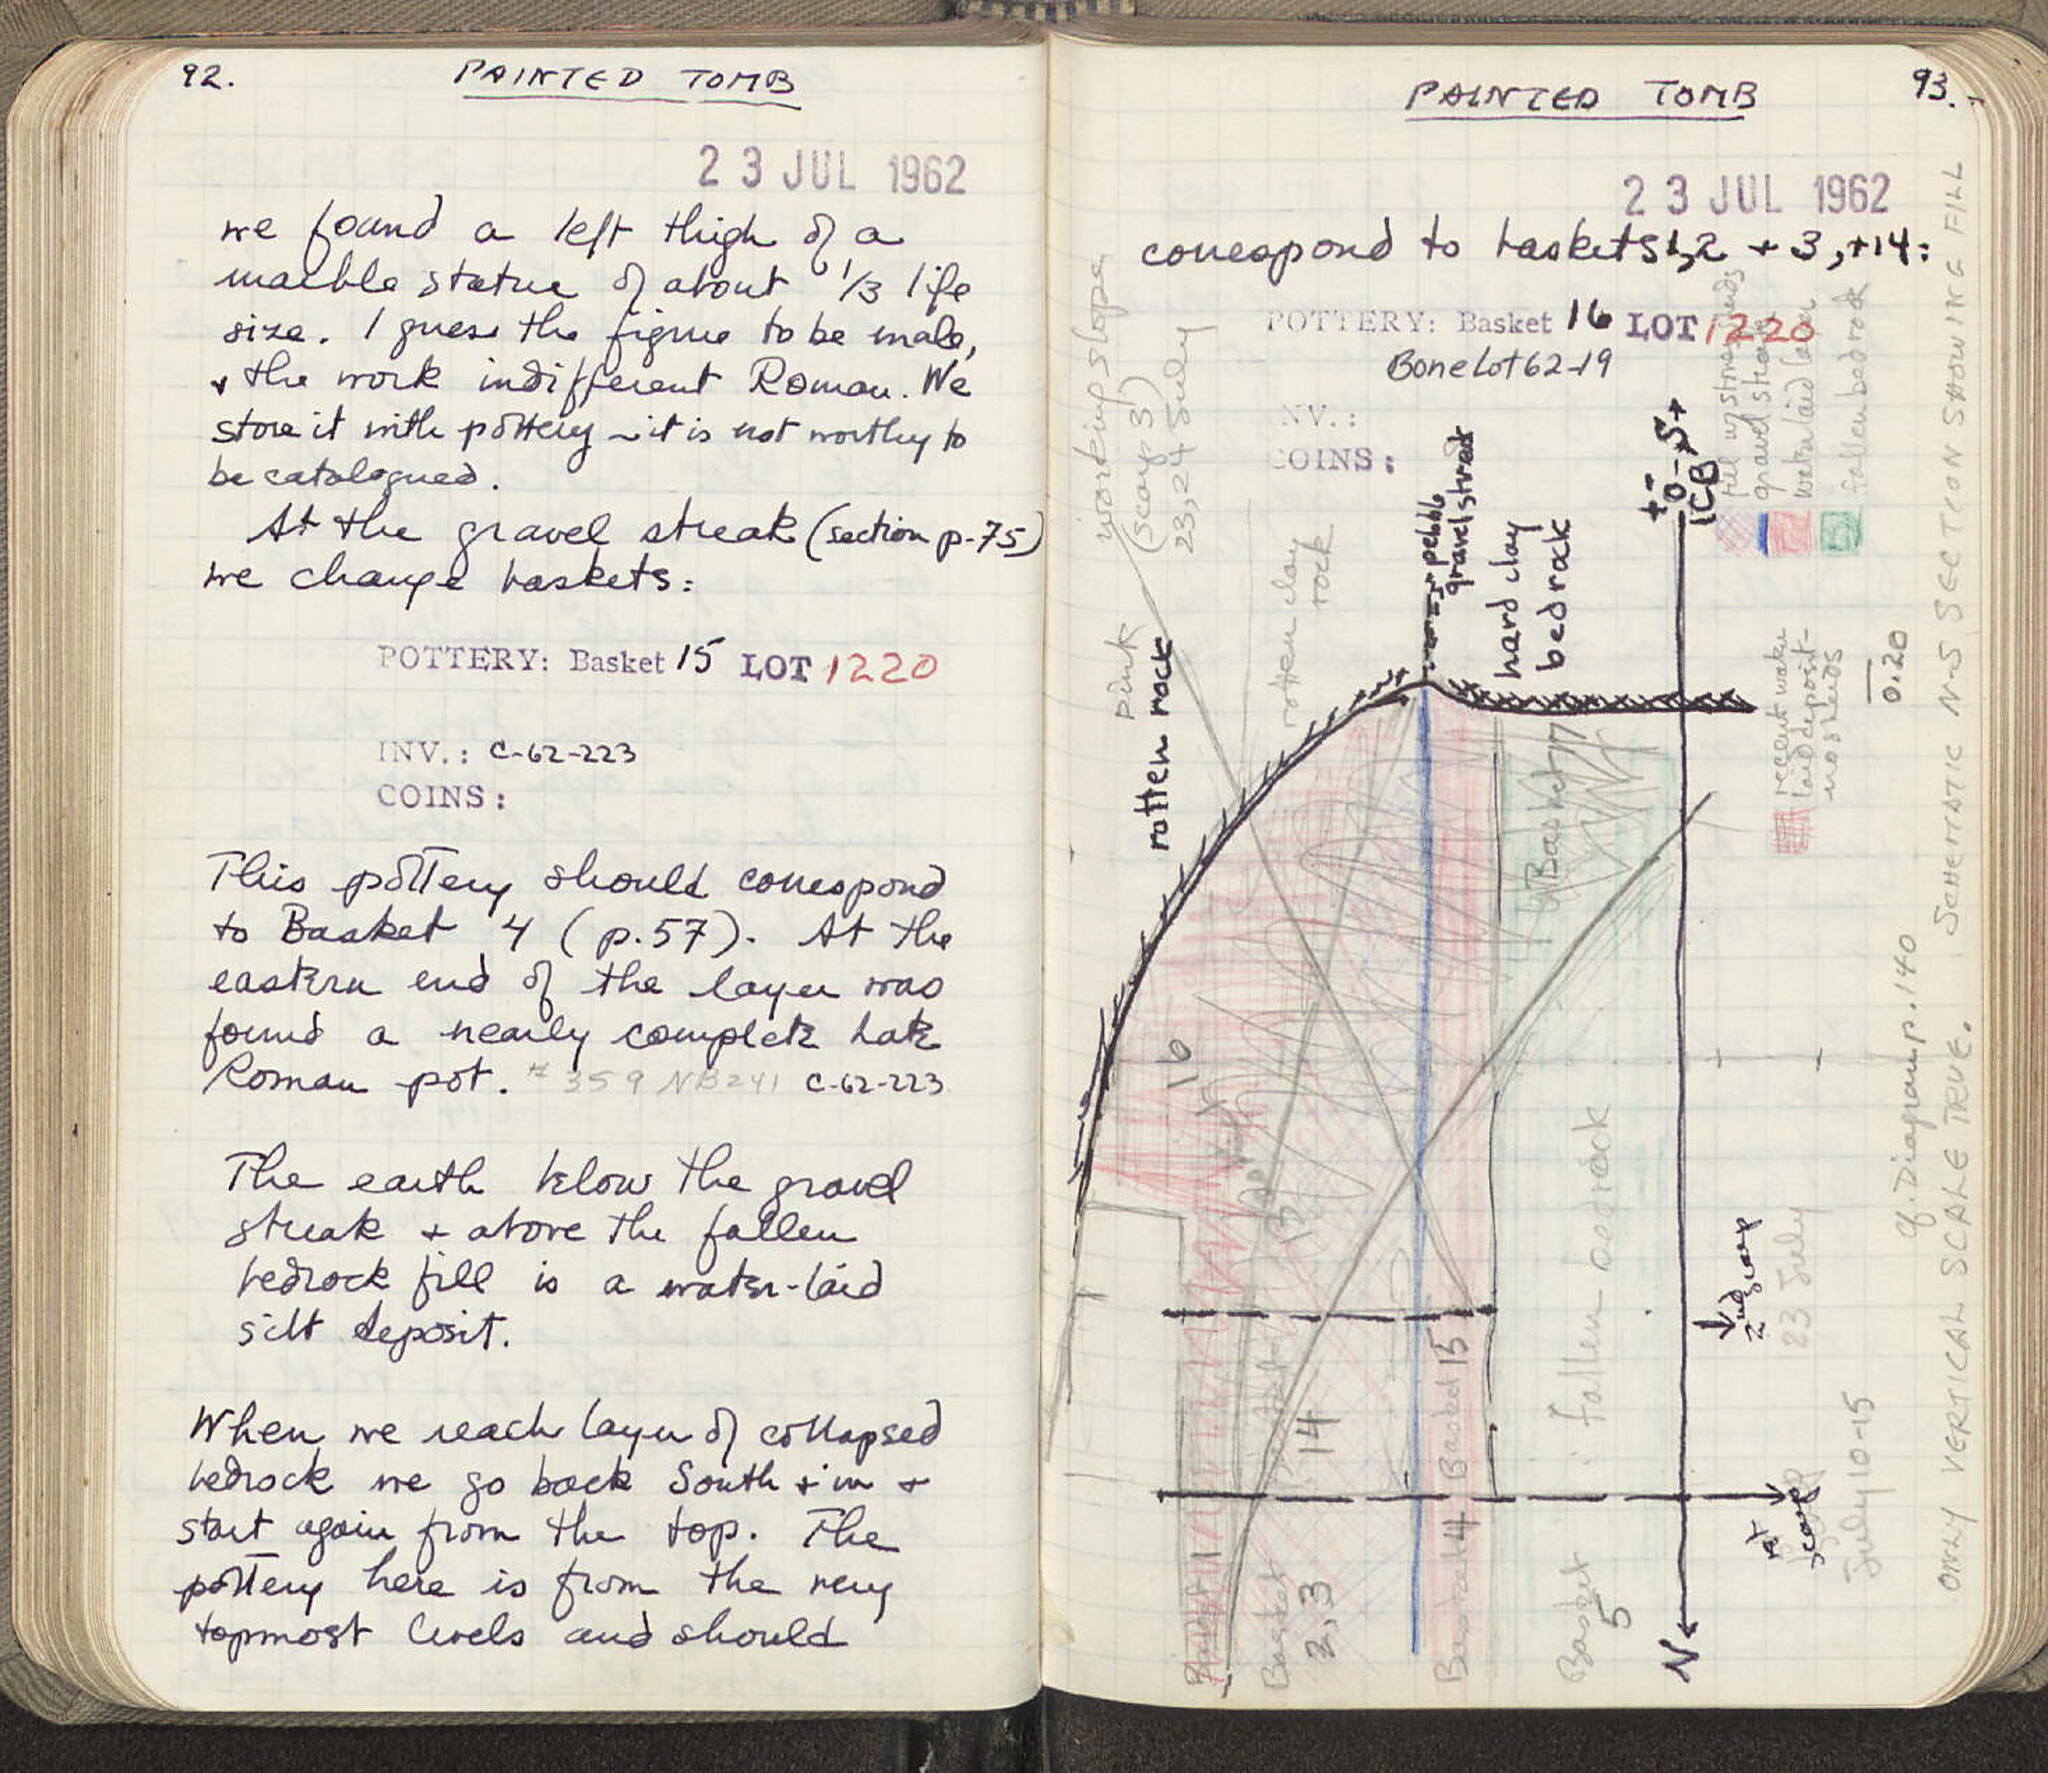 92.
PAINTED TOMB
23 JUL 1962
we found a left thigh of a
marble statue of about 1/3 life
size. I guess the figure to be male,
+ the work indifferent Roman. We
store it with pottery – it is not worthy to
be catalogued.
At the gravel streak (section p. 75)
we change baskets:
POTTERY: Basket 15 LOT 1220
INV.: C-62-223
COINS:
This pottery should correspond
to Basket 4 (p. 57). At the
eastern end of the layer was
found a nearly complete Late
Roman pot. #359 NB241 C-62-223
The earth below the gravel
streak + above the fallen
bedrock fill is a water-laid
silt deposit.
When we reach layer of collapsed
bedrock we go back South + in +
start again from the top. The
pottery here is from the very
topmost levels and should
93.
PAINTED TOMB
23 JUL 1962
correspond to baskets 1, 2 + 3, +14:
POTTERY: Basket 16 LOT 1220
Bone Lot 62-19
NV.:
COINS:
working slope
(scarp 3)
23, 24 July
pink
rotten rock
rotten clay
rock
pebble
gravel streak
hard clay
bedrock
+ - 0 - 5+
ICB
gravel streak
water laid layer
fallen bedrock
recent water
laid deposit -
no sherds
0.20
Basket 17
16
14
Basket 15
fallen bedrock
2nd scarp
23 July
1st scarp
July 10-15
Basket 1
Basket
2, 3
Basket 4
Basket
5
N
cf. Diagram p. 140
SCHEMATIC N-S SECTION SHOWING FILL
ONLY VERTICAL SCALE TRUE.